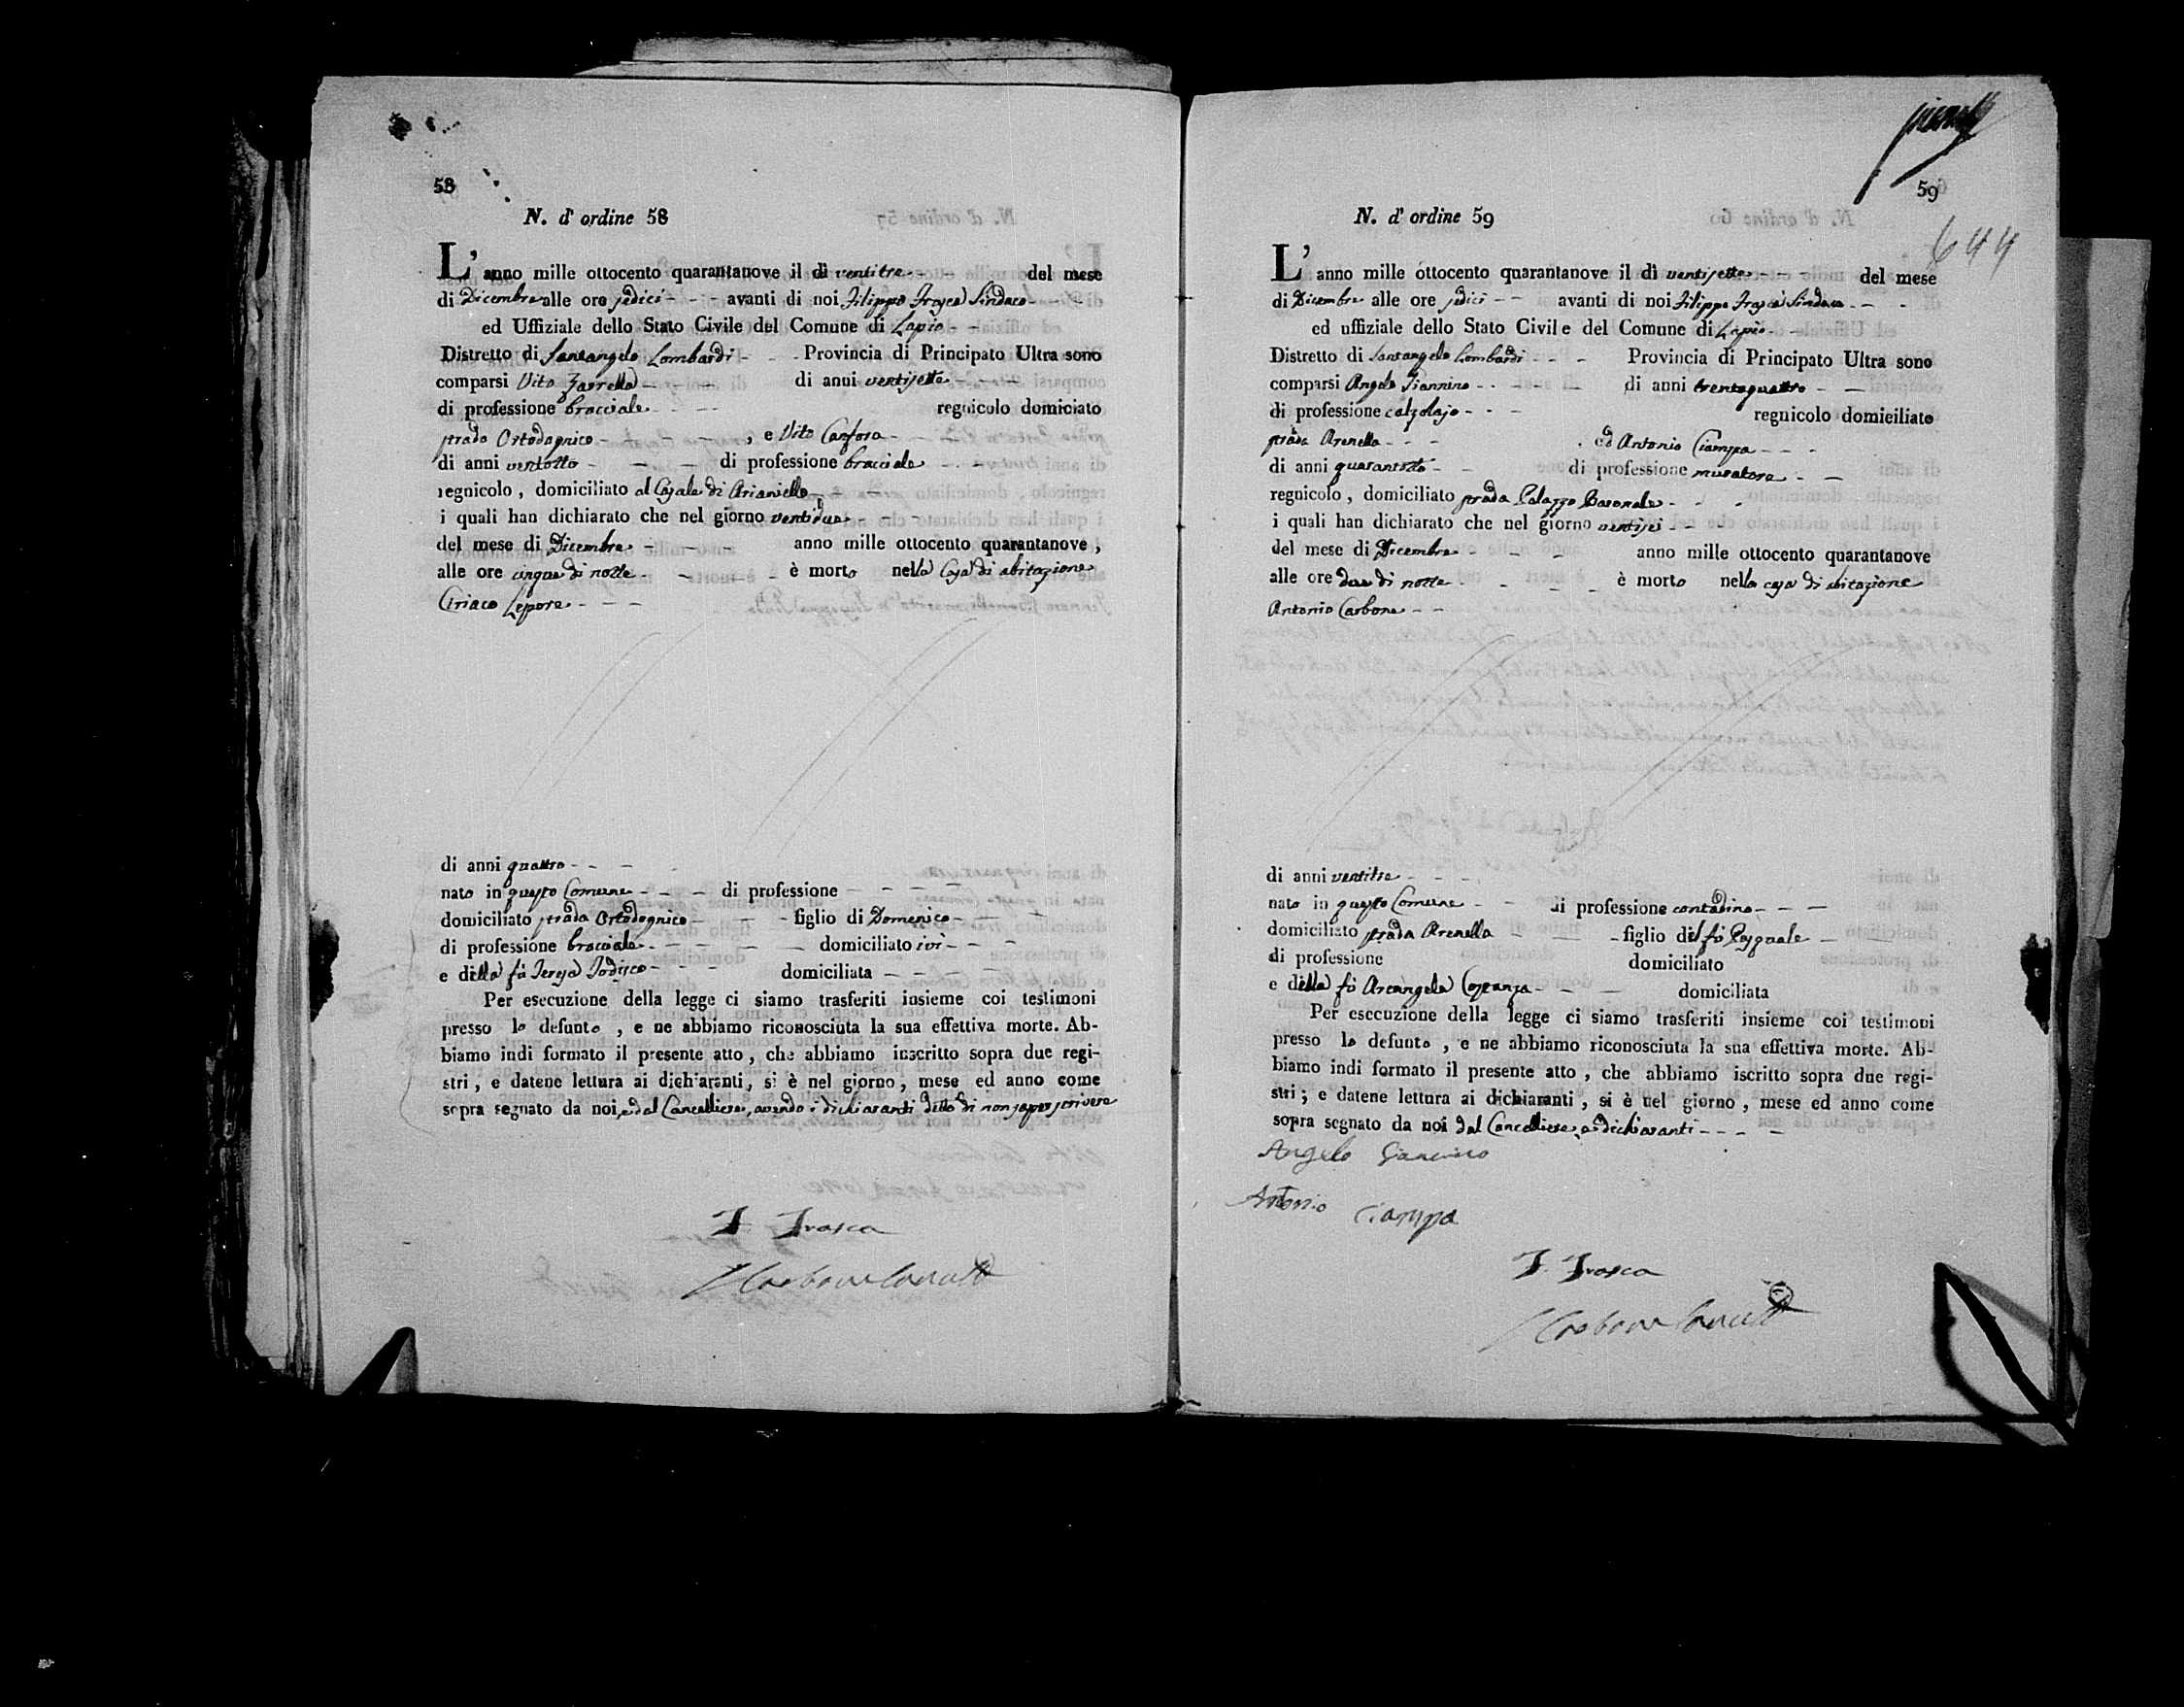 58
N. d' ordine 58
L' anno mille ottocento quarantanove il dì ventitre - - del mese
di Dicembre alle ore sedici - - - avanti di noi Filippo Frasca Sindaco - - -
ed Uffiziale dello Stato Civile del Comune di Lapio - -
Distretto di Santangelo Lombardi - - - Provincia di Principato Ultra sono
comparsi Vito Zarrella - - - di anni ventisette - - -
di professione bracciale - - - regnicolo domiciato
strada Ortodognico - - - , e Vito Canfora - -
di anni ventotto - - - di professione bracciale - -
regnicolo , domiciliato al Casale di Arianiello - - -
i quali han dichiarato che nel giorno ventidue - - -
del mese di Dicembre - - - anno mille ottocento quarantanove ,
alle ore cinque di notte - - - è morto nella Casa di abitazione
Ciriaco Lepore - - -
di anni quattro - - -
nato in questo Comune - - - di professione - - - -
domiciliato strada Ortodognico - - - figlio di Domenico - - -
di professione bracciale - - - - domiciliato ivi - - -
e della fù Teresa Iodisco - - - domiciliata - - -
Per esecuzione della legge ci siamo trasferiti insieme coi testimoni
presso lo defunto , e ne abbiamo riconosciuta la sua effettiva morte. Ab-
biamo indi formato il presente atto , che abbiamo inscritto sopra due regi-
stri , e datene lettura ai dichiaranti, si è nel giorno , mese ed anno come
sopra segnato da noi, e dal Cancelliere, avendo i dichiaranti detto di non saper scrivere
F. Frasca
59
644
N. d' ordine 59
L' anno mille ottocento quarantanove il dì ventisette - - - del mese
di Dicembre alle ore sedici - - avanti di noi Filippo Frasca Sindaco - - -
ed uffiziale dello Stato Civile del Comune di Lapio - -
Distretto di Santangelo Lombardi - - - Provincia di Principato Ultra sono
comparsi Angelo Giannino - - - di anni trentaquattro - -
di professione calzolajo - - - regnicolo domiciliato
strada Arenella - - - , ed Antonio Ciampa - - -
di anni quarantotto - - di professione muratore - -
regnicolo , domiciliato strada Palazzo Baronale - - -
i quali han dichiarato che nel giorno ventisei - - -
del mese di Dicembre - - - anno mille ottocento quarantanove
alle ore due di notte - - - è morto nella casa di abitazione
Antonio Carbone - -
di anni ventitre - - -
nato in questo Comune - - di professione contadino - - -
domiciliato strada Arenella - - - figlio del fù Pasquale - -
di professione domiciliato
e della fù Arcangela Costanza - - - domiciliata
Per esecuzione della legge ci siamo trasferiti insieme coi testimoni
presso lo defunto , e ne abbiamo riconosciuta la sua effettiva morte. Ab-
biamo indi formato il presente atto , che abbiamo iscritto sopra due regi-
stri ; e datene lettura ai dichiaranti , si è nel giorno , mese ed anno come
sopra segnato da noi dal Cancelliere, e dichiaranti - - - -
Angelo Giannino
Antonio Ciampa
F. Frasca